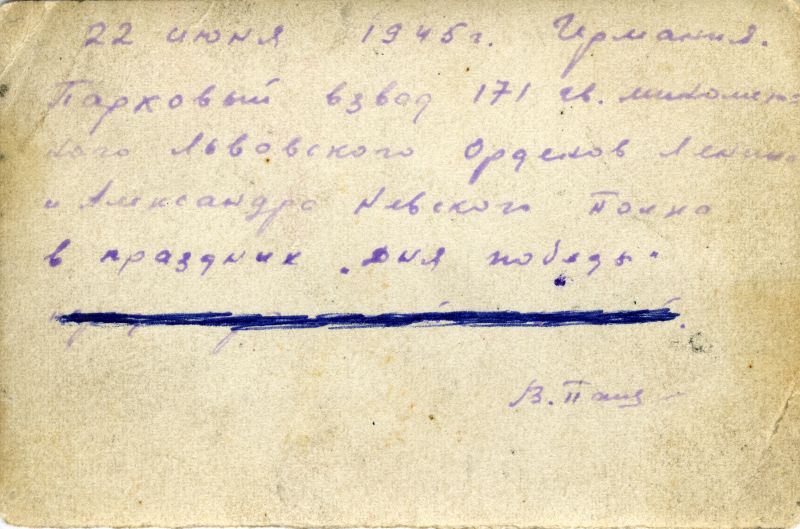 22 июня 1945г. Германия.
Парковый взвод 171 гв. минометн
ного Львовского Орденов Ленина
и Александра Невского полка
в праздник „Дня победы"
В.